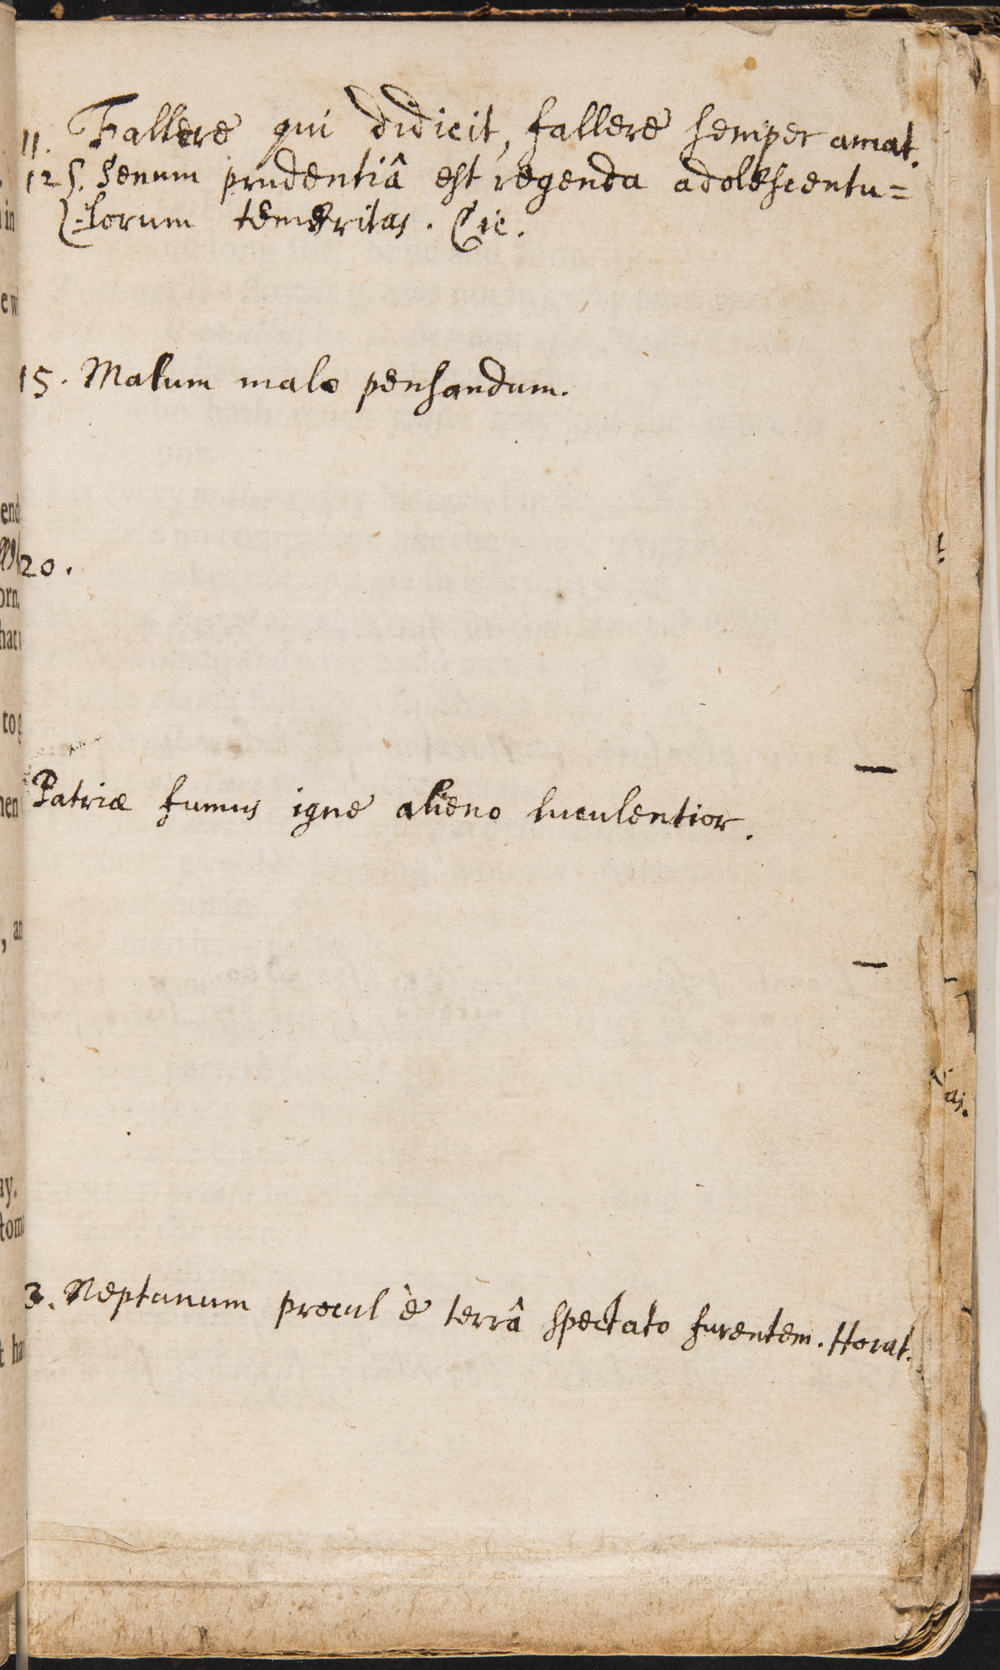 11. Fallere qui didicit, fallere semper amat.
12 Senum prudentiâ est regenda adolescentu=
=lorum temeritas. Cic.
15. Malum malo pensandum.
20.
Patriæ fumus igne alieno luculentior.
3. Neptunum procul è terrâ spectato furentem. Horat.